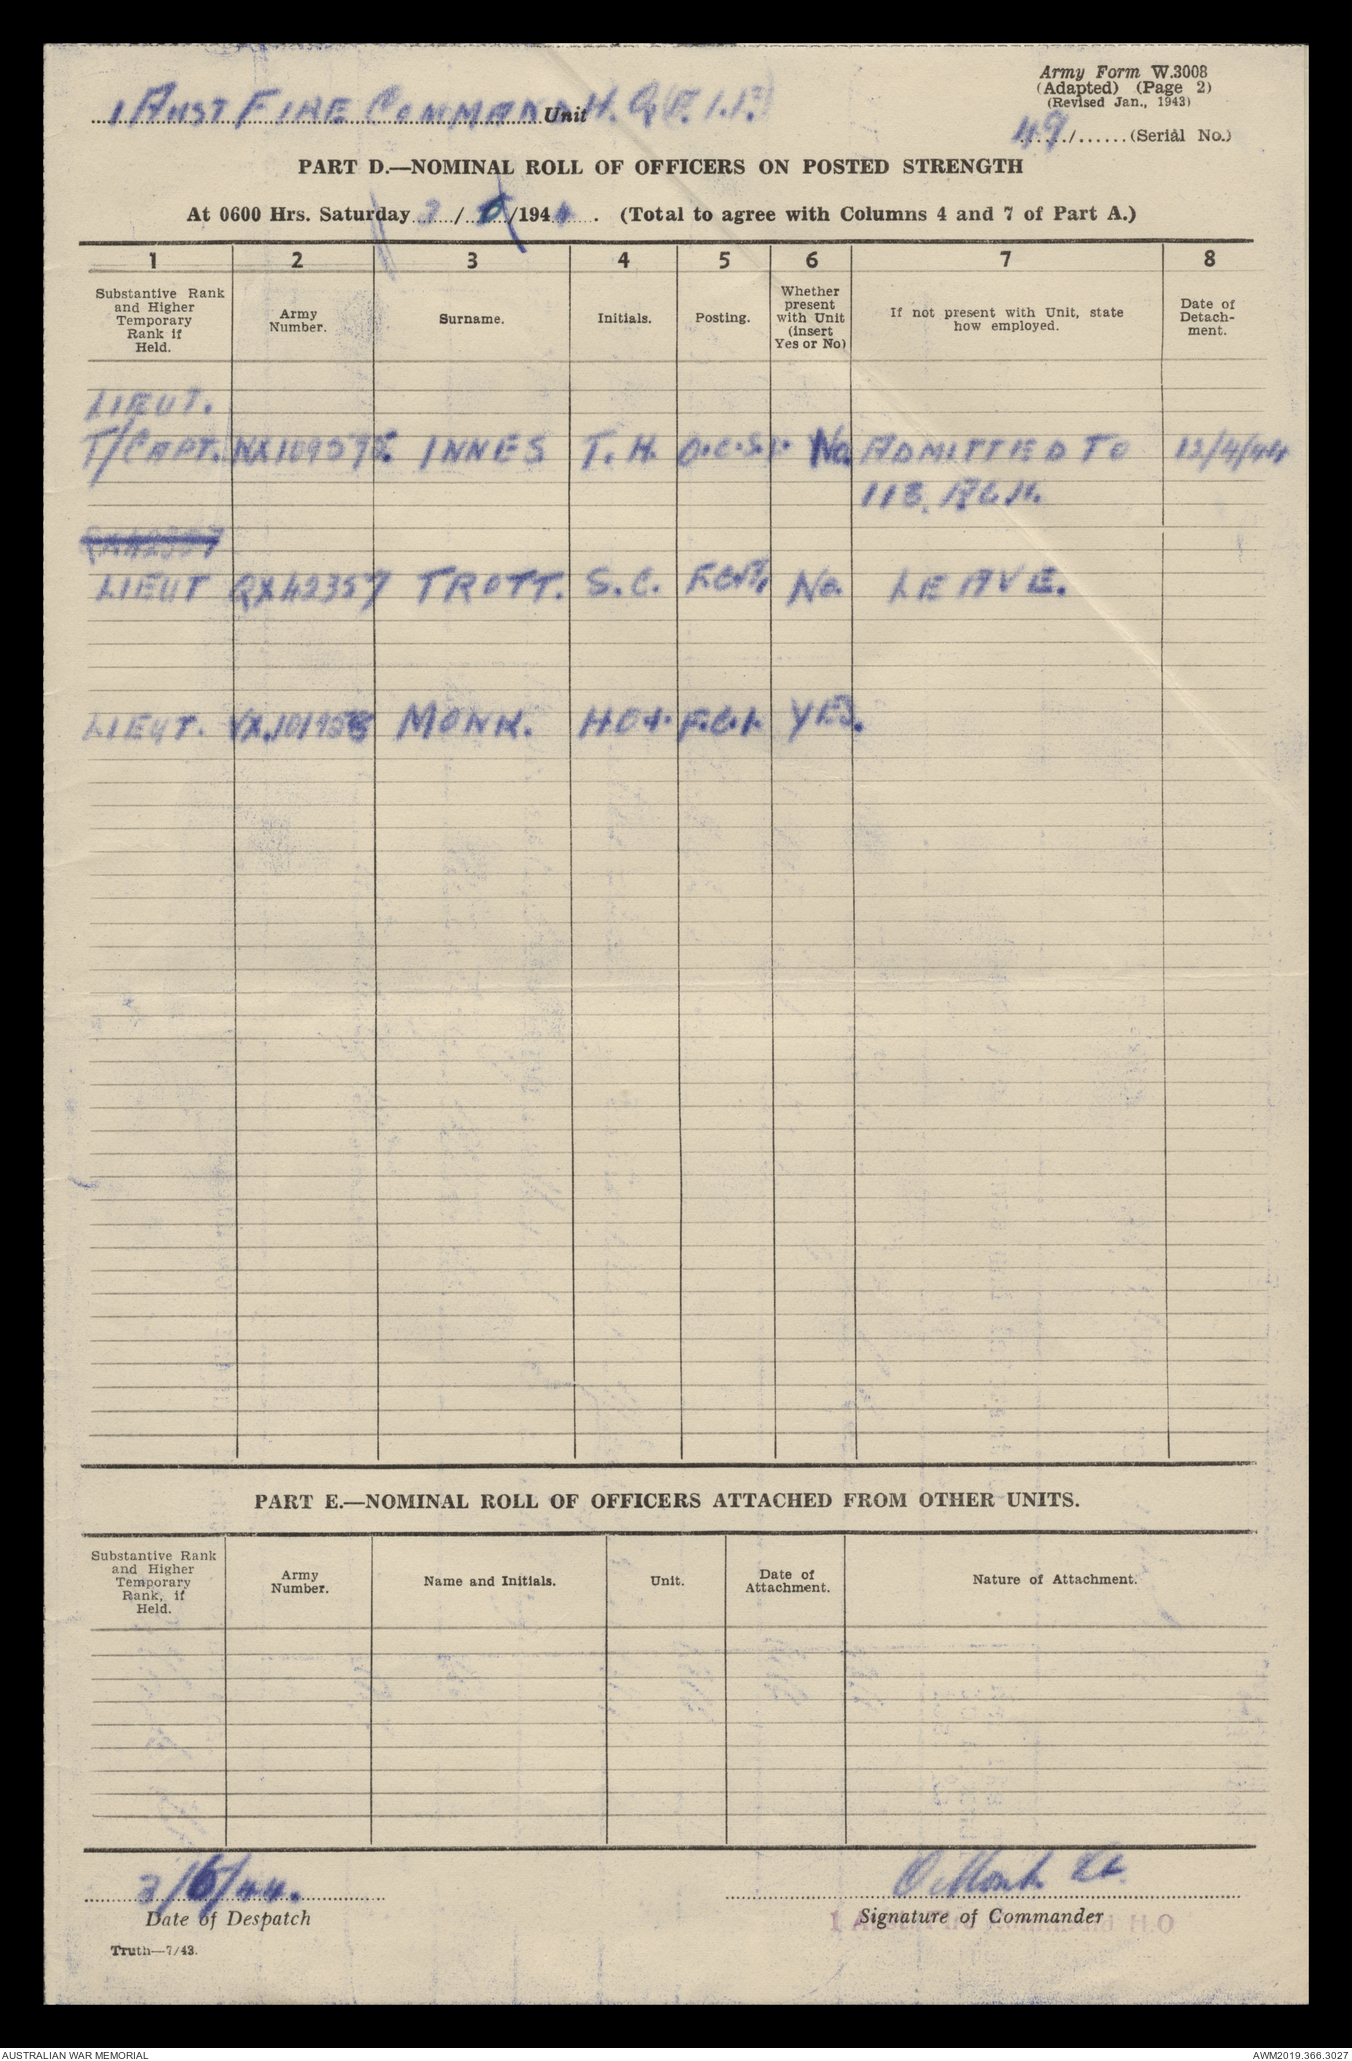 Army Form W.3008
(Adapted) (Page 2)
(Revised Jan., 1943)
1 AUST FIRE COMMAND H.Q. (A.I.F.) Unit
49/......(Serial No.)
PART D.—NOMINAL ROLL OF OFFICERS ON POSTED STRENGTH
At 0600 Hrs. Saturday 3/6/1944. (Total to agree with Columns 4 and 7 of Part A.)
1 2 3 4 5 6 7 8
Substantive Rank and Higher Temporary Rank if Held.
Army Number.
Surname.
Initials.
Posting.
Whether present with Unit (insert Yes or No)
If not present with Unit, state how employed.
Date of Detach-ment.
LIEUT.
T/CAPT. INNES T.H. No. ADMITTED TO 12/4/44
113. A.G.H.
QX42357
LIEUT QX42357 TROTT. S.C. No. LEAVE.
LIEUT. MONK. YES.
PART E.—NOMINAL ROLL OF OFFICERS ATTACHED FROM OTHER UNITS.
Substantive Rank and Higher Temporary Rank, if Held.
Army Number.
Name and Initials.
Unit.
Date of Attachment.
Nature of Attachment.
3/6/44. O Monk Lt.
Date of Despatch
Signature of Commander
1 Aust. Fire Command H.Q
Truth—7/43.
AUSTRALIAN WAR MEMORIAL
AWM2019.366.3027